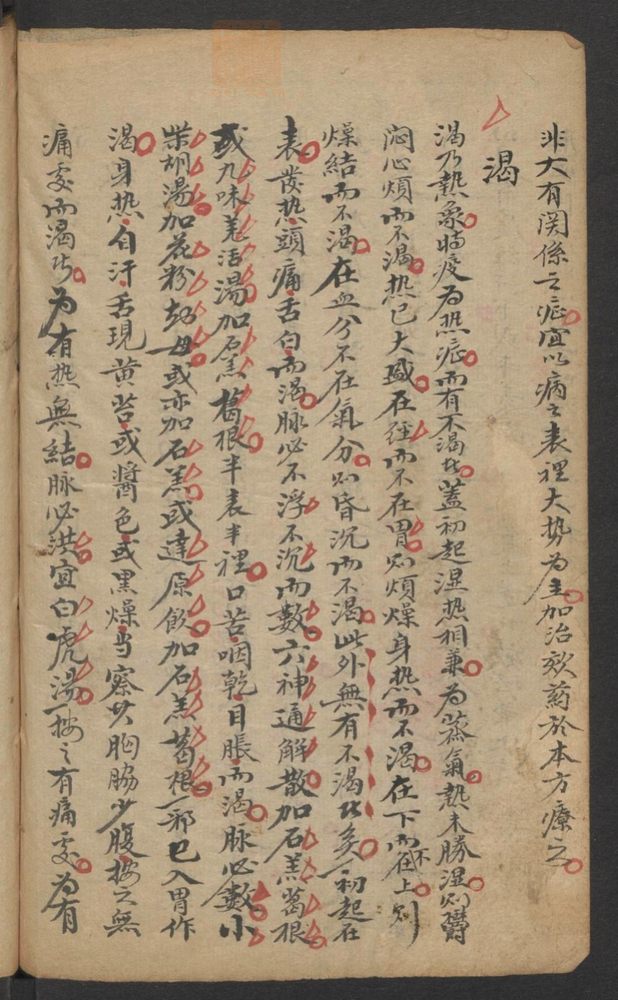 非大有関係之症宜以病之表裡大势为主加治欬药於本方療之
渴
渴乃熱象時疫为热症而有不渴者蓋初起湿热相兼为蒸氣熱未勝湿則欝
闷心煩而不渴热已大盛在经而不在胃則煩燥身热而不渴在下而不在上則
燥結而不渴在血分不在氣分則昏沉而不渴此外無有不渴者矣初起在
表发热頭痛舌白而渴脉必不浮不沉而數六神通解散加石羔葛根
或九味羌活湯加石羔葛根半表半裡口苦咽乾目脹而渴脉必數小
柴胡湯加花粉知母或亦加石羔或達原飲加石羔葛根邪已入胃作
渴身热自汗舌現黄苔或醬色或黒燥当察其胸脇少腹按之無
痛處而渴者为有热無結脉必洪宜白虎湯按之有痛處为有